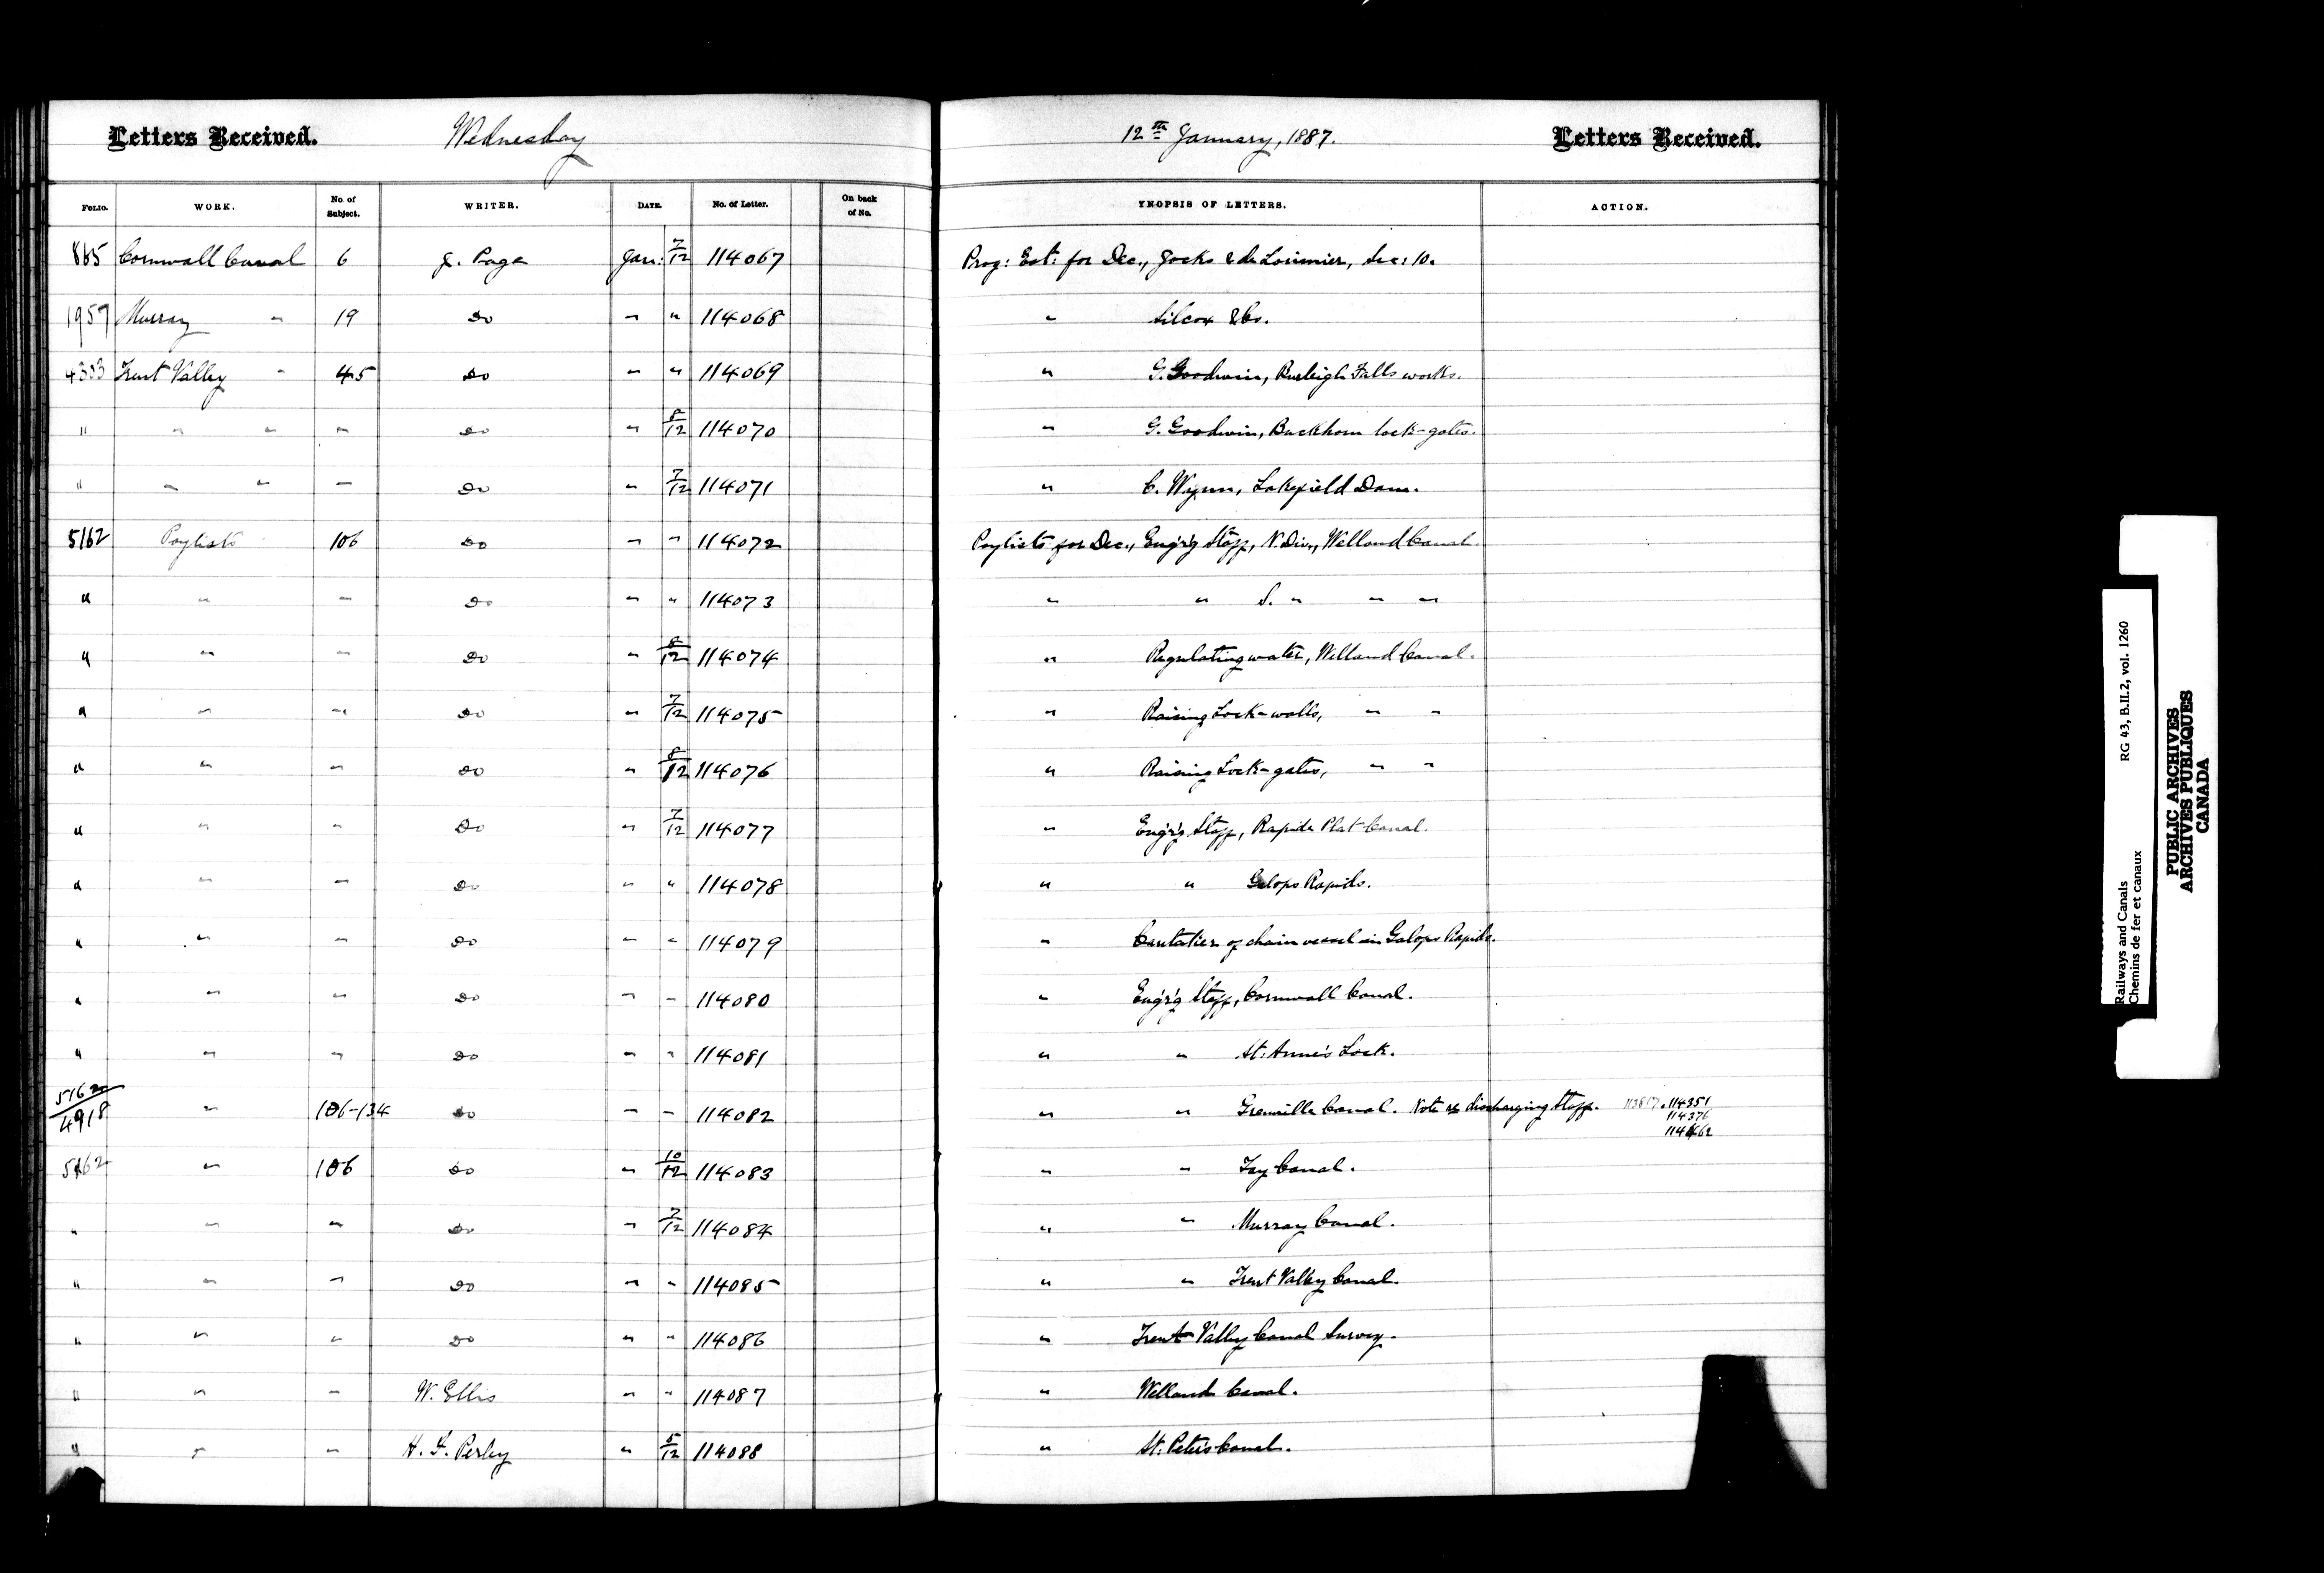 Letters Received. Wednesday 12th January, 1887. Letters Received.
FOLIO. WORK. No. of Subject. WRITER. DATE. No. of Letter. On back of No. YNOPSIS OF LETTERS. ACTION.
865 Cornwall Canal 6 J. Page Jan: 7/12 114067 Prog: Est: for Dec., Jocks & de Lorimier, Sec: 10.
1957 Murray " 19 Do " " 114068 " Silcox & Co.
4333 Trent Valley " 45 Do " " 114069 " G. Goodwin, Burleigh Falls works.
" " " " Do " 8/12 114070 " G. Goodwin, Buckhorn lock-gates.
" " " " Do " 7/12 114071 " C. Wynn, Lakefield Dam.
5162 Paylists 106 Do " " 114072 Paylists for Dec., Eng'r'g Staff, N. Div., Welland Canal.
" " " Do " " 114073 " " S. " " "
" " " Do " 8/12 114074 " Regulating water, Welland Canal.
" " " Do " 7/12 114075 " Raising Lock-walls, " "
" " " Do " 8/12 114076 " Raising Lock-gates, " "
" " " Do " 7/12 114077 " Eng'r'g Staff, Rapide Plat Canal.
" " " Do " " 114078 " " Galops Rapids.
" " " Do " " 114079 " Caretaker of chain vessel in Galops Rapids.
" " " Do " " 114080 " Eng'r'g Staff, Cornwall Canal.
" " " Do " " 114081 " " St. Anne's Lock.
5162/4918 " 106-134 Do " " 114082 " " Grenville Canal. Note re discharging Staff. 113817. 114351
114376
114462
5162 " 106 Do " 10/12 114083 " " Tay Canal.
" " " Do " 7/12 114084 " " Murray Canal.
" " " Do " " 114085 " " Trent Valley Canal.
" " " Do " " 114086 " Trent Valley Canal Survey.
" " " W. Ellis " " 114087 " Welland Canal.
" " " H. F. Perley " 5/12 114088 " St. Peter's Canal.
Railways and Canals RG 43, B.II.2, vol. 1260
Chemins de fer et canaux
PUBLIC ARCHIVES
ARCHIVES PUBLIQUES
CANADA